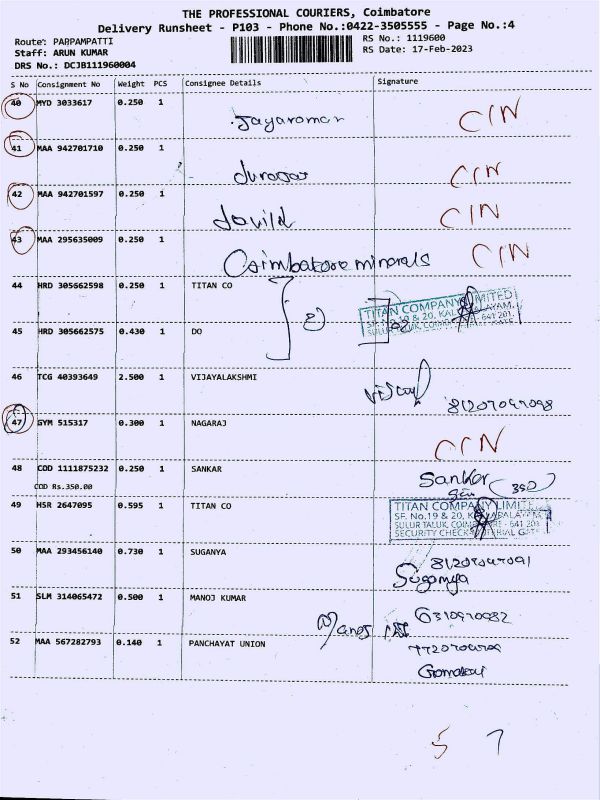 THE PROFESSIONAL COURIERS, Coimbatore
Delivery Runsheet - P103 - Phone No.:0422-3505555 - Page No.:4
Route: PAPPAMPATTI
Staff: ARUN KUMAR
DRS No.: DCJB111960004
RS No.: 1119600
RS Date: 17-Feb-2023
S No Consignment No Weight PCS Consignee Details Signature
40 MYD 3033617 0.250 1 Jayaraman CIN
41 MAA 942701710 0.250 1 CIN
42 MAA 942701597 0.250 1 CIN
43 MAA 295635009 0.250 1 Coimbatore minerals CIN
44 HRD 305662598 0.250 1 TITAN CO
TITAN COMPANY LIMITED
45 HRD 305662575 0.430 1 DO
46 TCG 40393649 2.500 1 VIJAYALAKSHMI
47 GYM 515317 0.300 1 NAGARAJ CIN
48 COD 1111875232 0.250 1 SANKAR Sanker 350
COD Rs.350.00
49 HSR 2647095 0.595 1 TITAN CO
TITAN COMPANY LIMITE
SF. No.19 & 20,
SULUR TALUK, - 641 201
SECURITY CHECK
50 MAA 293456140 0.730 1 SUGANYA
Suganya
51 SLM 314065472 0.500 1 MANOJ KUMAR Manoj
52 MAA 567282793 0.140 1 PANCHAYAT UNION
5 7